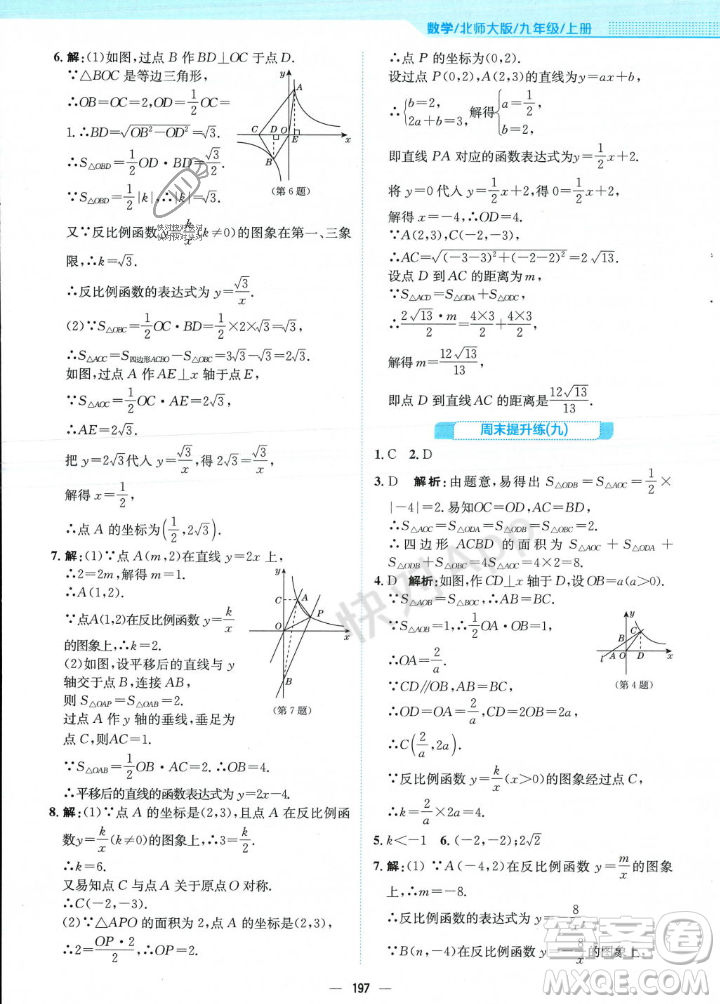 数学/北师大版/九年级/上册
6. 解:(1)如图,过点 B 作 BD⊥OC 于点 D.
∵△BOC 是等边三角形,
∴OB=OC=2,OD=\frac{1}{2}OC=
1.∴BD=\sqrt{OB²-OD²}=\sqrt{3}.
∴S△OBD=\frac{1}{2}OD·BD=\frac{\sqrt{3}}{2}.
∵S△OBD=\frac{1}{2}|k|,∴|k|=\sqrt{3}.
(第 6 题)
又∵反比例函数 y=\frac{k}{x}(k≠0)的图象在第一、三象
限,∴k=\sqrt{3}.
∴反比例函数的表达式为 y=\frac{\sqrt{3}}{x}.
(2)∵S△OBC=\frac{1}{2}OC·BD=\frac{1}{2}×2×\sqrt{3}=\sqrt{3},
∴S△AOC=S四边形ACBO-S△OBC=3\sqrt{3}-\sqrt{3}=2\sqrt{3}.
如图,过点 A 作 AE⊥x 轴于点 E.
∵S△AOC=\frac{1}{2}OC·AE=2\sqrt{3},
∴AE=2\sqrt{3}.
把 y=2\sqrt{3}代入 y=\frac{\sqrt{3}}{x},得 2\sqrt{3}=\frac{\sqrt{3}}{x},
解得 x=\frac{1}{2}.
∴点 A 的坐标为(\frac{1}{2},2\sqrt{3}).
7. 解:(1)∵点 A(m,2)在直线 y=2x 上,
∴2=2m,解得 m=1.
∴A(1,2).
∵点 A(1,2)在反比例函数 y=\frac{k}{x}
的图象上,∴k=2.
(2)如图,设平移后的直线与 y
轴交于点 B,连接 AB,
则 S△OAP=S△OAB=2.
过点 A 作 y 轴的垂线,垂足为
点 C,则 AC=1.
(第 7 题)
∵S△OAB=\frac{1}{2}OB·AC=2,∴OB=4.
∴平移后的直线的函数表达式为 y=2x-4.
8. 解:(1)∵点 A 的坐标是(2,3),且点 A 在反比例函
数y=\frac{k}{x}(k≠0)的图象上,∴3=\frac{k}{2}.
∴k=6.
又易知点 C 与点 A 关于原点 O 对称.
∴C(-2,-3).
(2)∵△APO 的面积为 2,点 A 的坐标是(2,3),
∴2=\frac{OP·2}{2},解得 OP=2.
∴点 P 的坐标为(0,2).
设过点 P(0,2),A(2,3)的直线为 y=ax+b.
∴{b=2, 2a+b=3,解得{a=\frac{1}{2}, b=2.
即直线 PA 对应的函数表达式为 y=\frac{1}{2}x+2.
将 y=0 代入 y=\frac{1}{2}x+2,得 0=\frac{1}{2}x+2,
解得 x=-4.∴OD=4.
∵A(2,3),C(-2,-3),
∴AC=\sqrt{(-3-3)²+(-2-2)²}=2\sqrt{13}.
设点 D 到 AC 的距离为 m,
∵S△ACD=S△ODA+S△ODC,
∴\frac{2\sqrt{13}·m}{2}=\frac{4×3}{2}+\frac{4×3}{2},
解得 m=\frac{12\sqrt{13}}{13}.
即点 D 到直线 AC 的距离是\frac{12\sqrt{13}}{13}.
周末提升练(九)
1. C 2. D
3. D 解析:由题意,易得出 S△ODB=S△AOC=\frac{1}{2}×
|-4|=2.易知OC=OD,AC=BD,
∴S△AOC=S△ODA=S△ODB=S△OBC=2.
∴四边形 ACBD 的面积为 S△AOC+S△ODA+
S△ODB+S△OBC=2×4=8.
4. D 解析:如图,作 CD⊥x 轴于 D,设 OB=a(a>0).
∵S△AOB=1,∴\frac{1}{2}OA·OB=1.
∴OA=\frac{2}{a}.
∵CD∥OB,AB=BC,
∴OD=OA=\frac{2}{a},CD=2OB=2a,
(第 4 题)
∴C(\frac{2}{a},2a).
∵反比例函数 y=\frac{k}{x}(x>0)的图象经过点 C,
∴k=\frac{2}{a}·2a=4.
5. k<-1 6. (-2,-2);2\sqrt{2}
7. 解:(1)∵A(-4,2)在反比例函数 y=\frac{m}{x}的图象
上,∴m=-8.
∴反比例函数的表达式为 y=-\frac{8}{x}.
∵B(n,-4)在反比例函数 y=-\frac{8}{x}的图象上,
197
快对App
快对快对快对
快对快对快对
答案圈